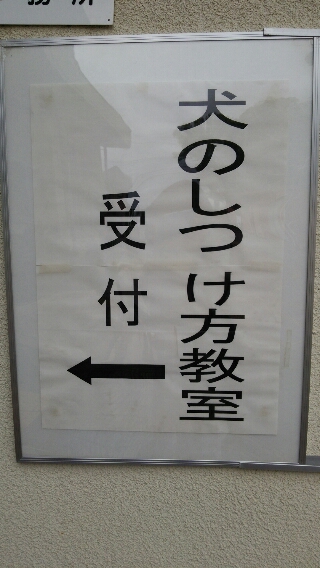 務所
犬のしつけ方教室
受付